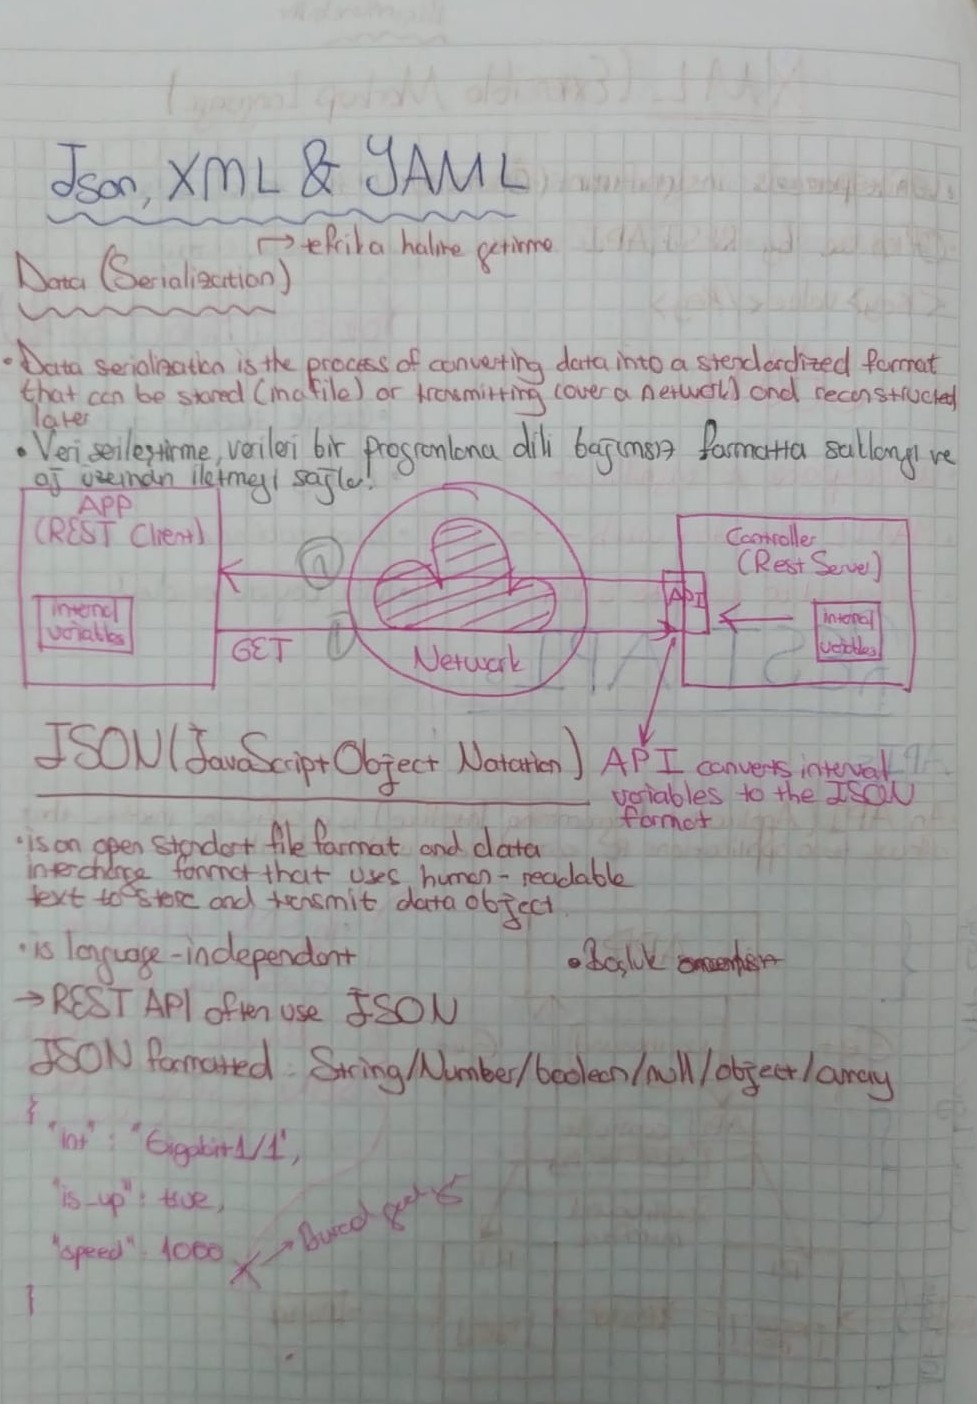 Json, XML & YAML
→ tefrika haline getirme
Data (Serialization)
• Data serialization is the process of converting data into a standardized format
that can be stored (in a file) or transmitting (over a network) and reconstructed
later
• Veri serileştirme, verileri bir programlama dili bağımsız formatta saklamayı ve
ağ üzerinden iletmeyi sağlar.
APP
(REST Client)
internal
variables
GET
1
Network
Controller
(Rest Server)
API
internal
variables
JSON (JavaScript Object Notation)
API converts internal
variables to the JSON
format
• is an open standart file format and data
interchange format that uses human-readable
text to store and transmit data object.
• is language-independent
• Boşluk
→ REST API often use JSON
JSON formatted: String/Number/boolean/null/object/array
{
"int": "Gigabit1/1",
"is_up": true,
"speed": 1000
}